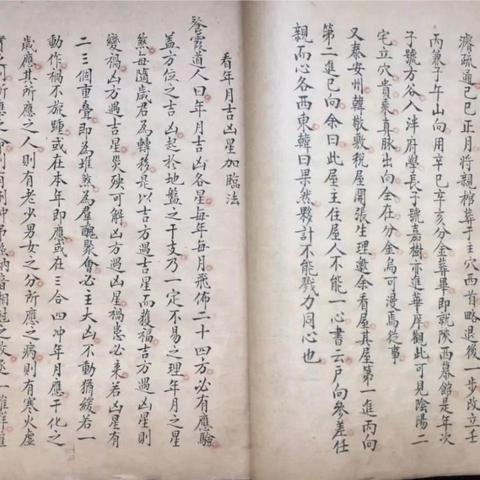 濟疏通己巳正月將親棺葬于主穴西首略退後一步改立壬
丙兼子午山向用辛巳辛亥分金葬畢即就陝西幕館是年次
子號方谷入泮府學長子號嘉樹亦進華庠觀此可見陰陽二
宅立穴貴乘真脈出向全在分金烏可漫焉從事
又泰安州韓敬敷税屋開張生理邀余看屋其屋第一進丙向
第二進巳向余曰此屋主住屋人不能一心書云戶向參差任
親而心各西東韓曰果然夥計不能戮力同心也
看年月吉凶星加臨法
養雲道人曰年月吉凶各星每年每月飛佈二十四方必有應驗
蓋方位之吉凶起於地盤之干支乃一定不易之理年月之星
煞每隨歲君為轉移是以吉方遇吉星而獲福吉方遇凶星則
變禍凶方遇吉星災殃可解凶方遇凶星禍患必来若凶星有
二三個重疊即為堆煞為羣醜聚會必主大凶不動猶緩若一
動作禍不旋踵或在本年即應或在三合四冲年月應干化之
歲應其所應之人則有老少男女之分所應之病則有寒火虛